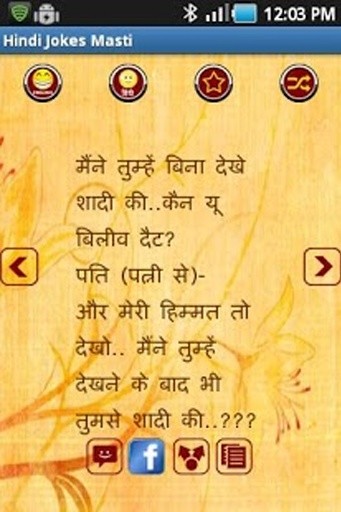 12:03 PM
Hindi Jokes Masti
ENGLISH
हिंदी
मैंने तुम्हें बिना देखे
शादी की..कैन यू
बिलीव दैट?
पति (पत्नी से)-
और मेरी हिम्मत तो
देखो.. मैंने तुम्हें
देखने के बाद भी
तुमसे शादी की..???
f